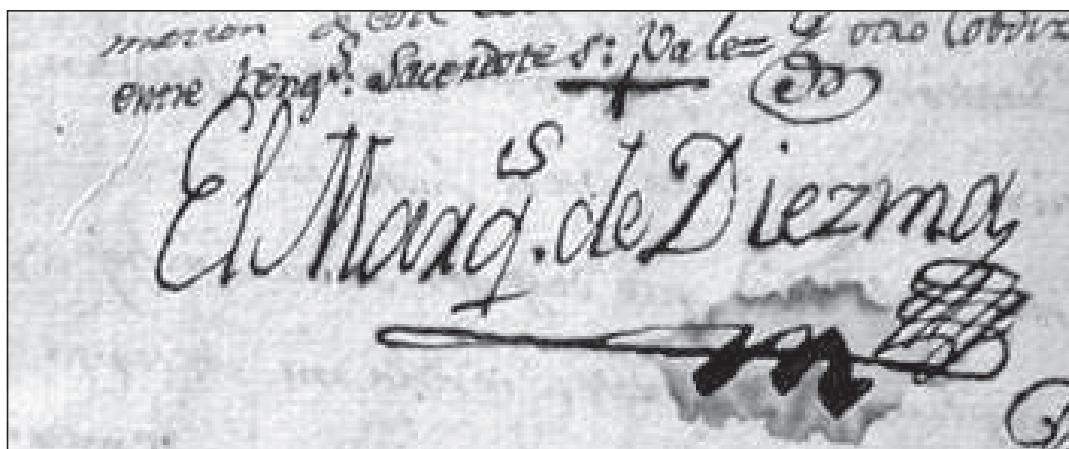 entre Reng.s: Sacerdote s: Vale= Y otro
El Marq.s de Diezma